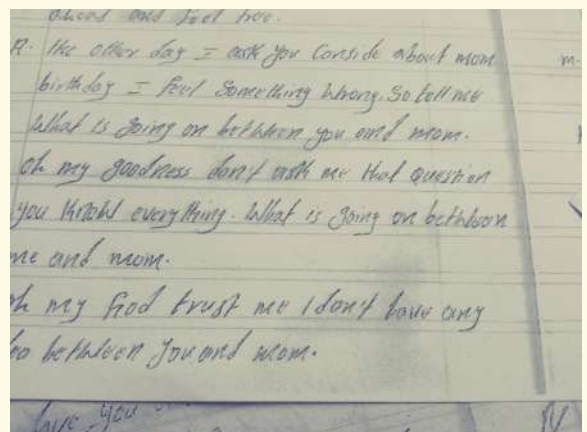 ahead and feel free.
R. the other day I ask you Conside about mom
birthday I feel Something Whrong. So tell me
What is going on bethween you and mom.
oh my goodness don't ask me that question
you thknow everything. What is going on bethween
me and mom.
h my God trust me I don't have any
bethween you and mom.
have you